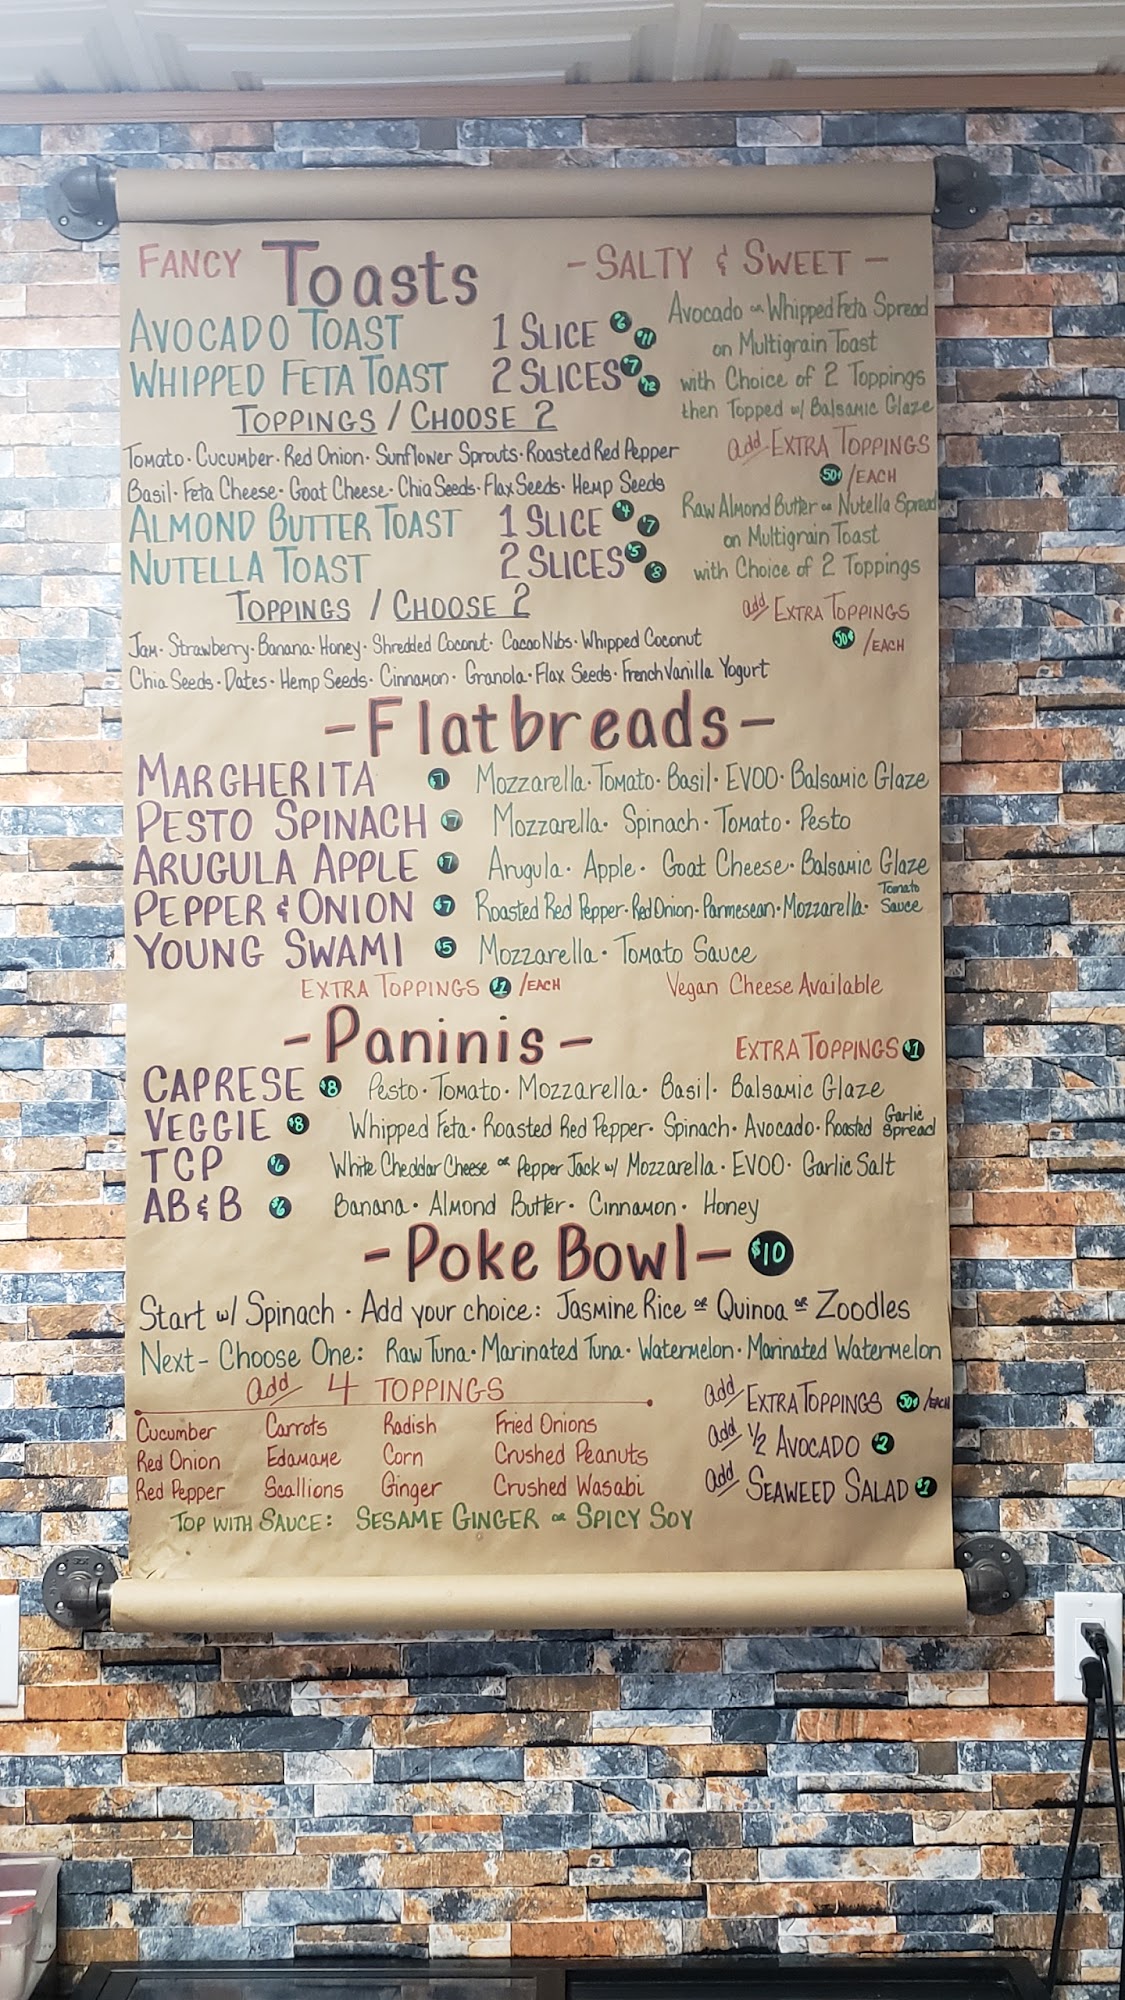 FANCY Toasts - SALTY & SWEET -
AVOCADO TOAST 1 SLICE $6 $11
WHIPPED FETA TOAST 2 SLICES $7 $12
Avocado or Whipped Feta Spread
on Multigrain Toast
with Choice of 2 Toppings
then Topped w/ Balsamic Glaze
TOPPINGS / CHOOSE 2
Tomato · Cucumber · Red Onion · Sunflower Sprouts · Roasted Red Pepper
Basil · Feta Cheese · Goat Cheese · Chia Seeds · Flax Seeds · Hemp Seeds
add EXTRA TOPPINGS
50¢ /EACH
ALMOND BUTTER TOAST 1 SLICE $4 $7
NUTELLA TOAST 2 SLICES $5 $8
Raw Almond Butter or Nutella Spread
on Multigrain Toast
with Choice of 2 Toppings
TOPPINGS / CHOOSE 2
add EXTRA TOPPINGS
50¢ /EACH
Jam · Strawberry · Banana · Honey · Shredded Coconut · Cacao Nibs · Whipped Coconut
Chia Seeds · Dates · Hemp Seeds · Cinnamon · Granola · Flax Seeds · French Vanilla Yogurt
- Flatbreads -
MARGHERITA $7 Mozzarella · Tomato · Basil · EVOO · Balsamic Glaze
PESTO SPINACH $7 Mozzarella · Spinach · Tomato · Pesto
ARUGULA APPLE $7 Arugula · Apple · Goat Cheese · Balsamic Glaze
PEPPER & ONION $7 Roasted Red Pepper · Red Onion · Parmesean · Mozzarella · Tomato Sauce
YOUNG SWAMI $5 Mozzarella · Tomato Sauce
EXTRA TOPPINGS $1 /EACH Vegan Cheese Available
- Paninis - EXTRA TOPPINGS $1
CAPRESE $8 Pesto · Tomato · Mozzarella · Basil · Balsamic Glaze
VEGGIE $8 Whipped Feta · Roasted Red Pepper · Spinach · Avocado · Roasted Garlic Spread
TCP $6 White Cheddar Cheese or Pepper Jack w/ Mozzarella · EVOO · Garlic Salt
AB & B $6 Banana · Almond Butter · Cinnamon · Honey
- Poke Bowl - $10
Start w/ Spinach · Add your choice: Jasmine Rice or Quinoa or Zoodles
Next - Choose One: Raw Tuna · Marinated Tuna · Watermelon · Marinated Watermelon
add 4 TOPPINGS
Cucumber Carrots Radish Fried Onions
Red Onion Edamame Corn Crushed Peanuts
Red Pepper Scallions Ginger Crushed Wasabi
add EXTRA TOPPINGS 50¢ /EACH
add 1/2 AVOCADO $2
add SEAWEED SALAD $1
TOP WITH SAUCE: SESAME GINGER or SPICY SOY